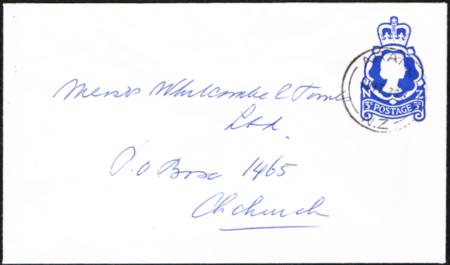 Messrs Whitcombe & Tombs
Ltd.
P.O Box 1465
Chchurch
POSTAGE
N.Z.